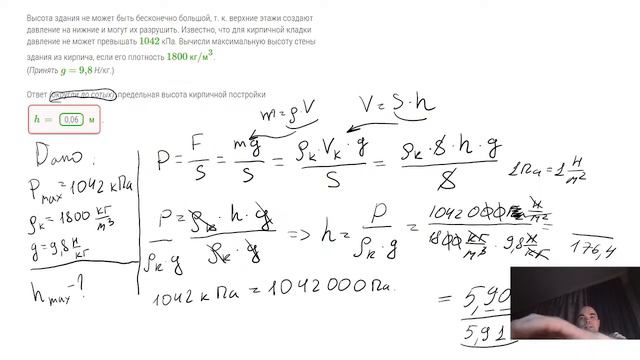 Высота здания не может быть бесконечно большой, т. к. верхние этажи создают
давление на нижние и могут их разрушить. Известно, что для кирпичной кладки
давление не может превышать 1042 кПа. Вычисли максимальную высоту стены
здания из кирпича, если его плотность 1800 кг/м³.
(Принять g = 9,8 Н/кг.)
Ответ (округли до сотых): предельная высота кирпичной постройки
h = 0,06 м .
m=ρV V=S·h
Дано:
P = F/S = mg/S = ρк·Vк·g/S = ρк·S·h·g/S
1Па=1 Н/м²
Pmax=1042 кПа
ρк=1800 кг/м³
g=9,8 Н/кг
hmax-?
P/ρк·g = ρк·h·g/ρк·g => h = P/ρк·g =
176,4
1042 кПа = 1042000Па.
= 5,90
5,91